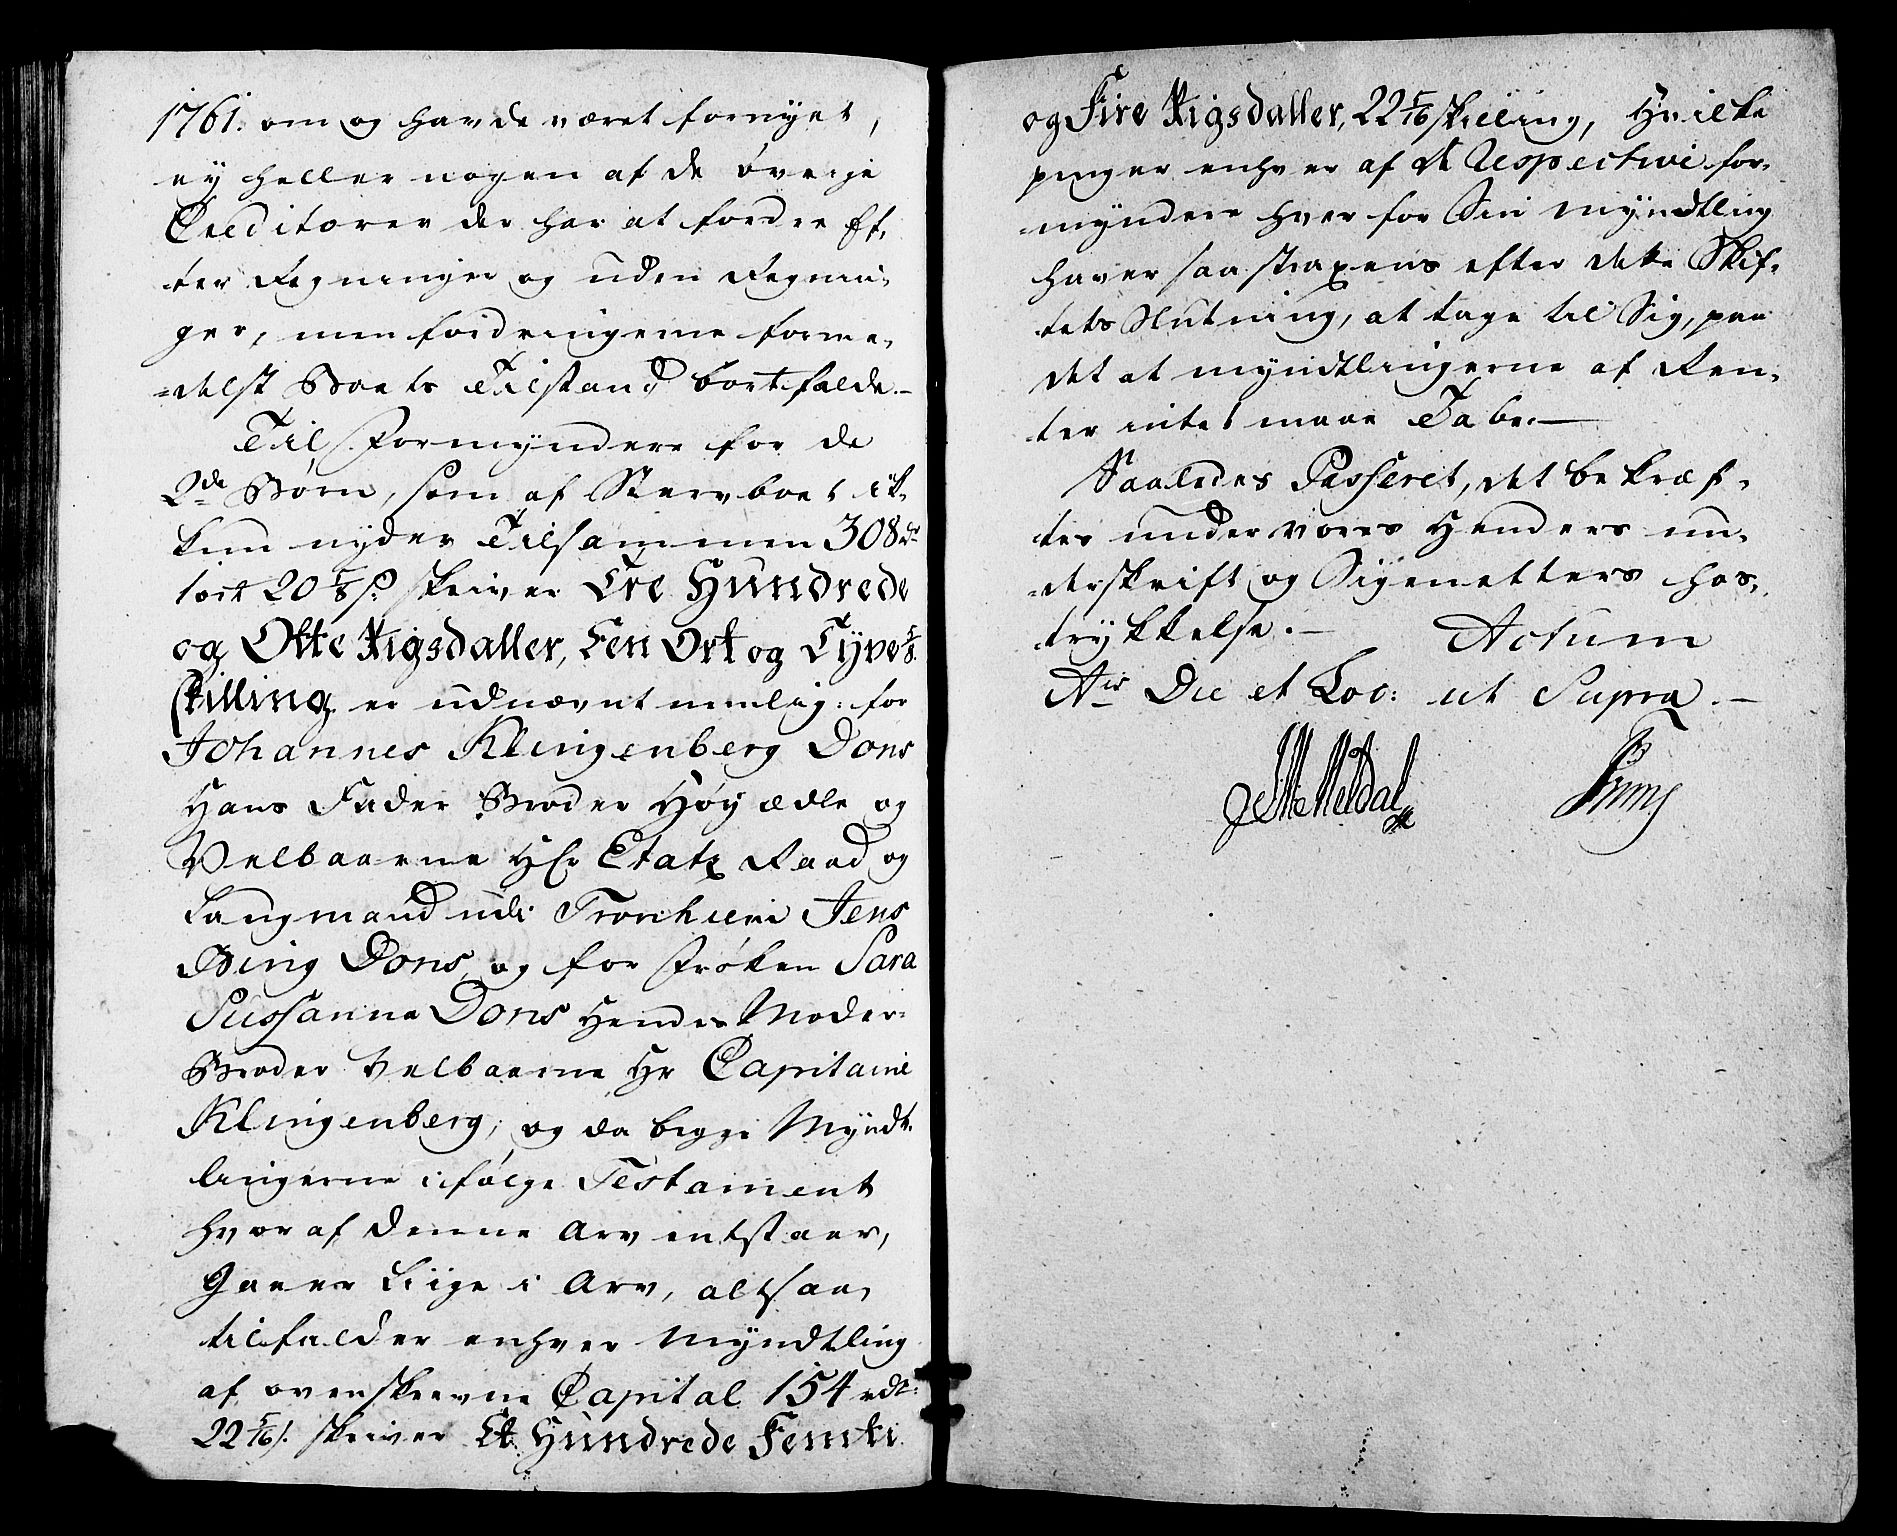 1761. om og havde været fornyet,
ey heller nogen af de øvrige
Creditorer der har at fordre Ef,
ter Regninger og uden Regnin,
ger, men fordringerne forme,
=delst Boets Tilstand bortfalde.–
Til Formyndere for de
2de Børn, som af Stervboet ik,
kun nyder Tilsammen 308 rdr
1 ort 20 5/8 s. skriver Tre Hundrede
og Otte Rigsdaller, Een Ort og Tyve 5/8
skilling er udnævnt nemlig: for
Johannes Klingenberg Dons
Hans Fader Broder Høy ædle og
Velbaarne Hr Etatz Raad og
Laugmand udi Tronhiem Jens
Bing Dons, og for Frøken Sara
Sussanna Dons Hendes Moder=
Broder Velbaarne Hr Capitaine
Klingenberg, og da begge Myndt,
lingerne ifølge Testament
hvoraf denne Arv entstaaer,
Gaaer Liige i Arv, altsaa
tilfalder enhver Myndtling
af ovenskrevne Capital 154 rdr:
22 5/16 s. skriver Et Hundrede Femti
og Fire Rigsdaller, 22 5/16 skilling, Hvilke
penger enhver af de Respective for,
=myndere hver for Sin Myndtling
haver saa straxens efter dette Skif,
tets Slutning, at tage til Sig, paa
det at myndtlingerne af Ren,
ter intet maae Tabe.—
Saaledes Passeret, det bekræf,
tes under vores Henders un,
=derskrift og Signetters hos,
trykkelse.– Actum
A͞is Die et Loc: ut Supra.–
Meldal